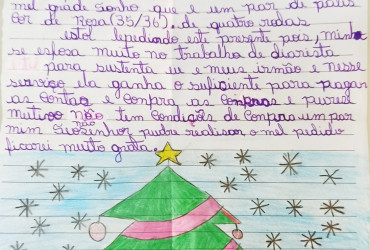 mel grãde sonho que e um par de patis
cor de Rosa (35/36). de quatro rodas
estol lepedindo este presente pois, minha
se esfosa muito no trabalho de diarista
para sustenta eu e meus irmão e nesse
serviço ela ganha o suficiente para pagar
as contas e compra as compras e pur esi
mutivo não tem condições de compra um par
não
mim se o senhor pudre realisar o mel pedido
ficarei muito grata.